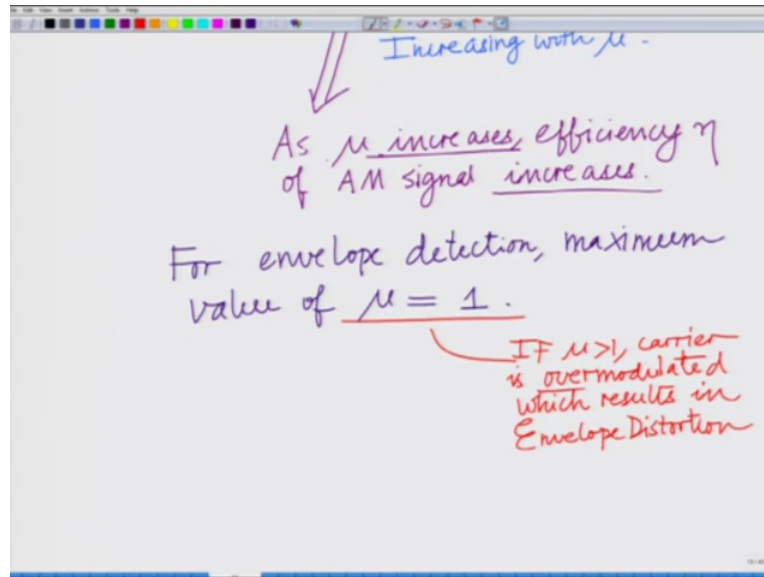 Increasing with μ.
As μ increases, efficiency η
of AM signal increases.
For envelope detection, maximum
value of μ = 1.
IF μ>1, carrier
is overmodulated
which results in
Envelope Distortion